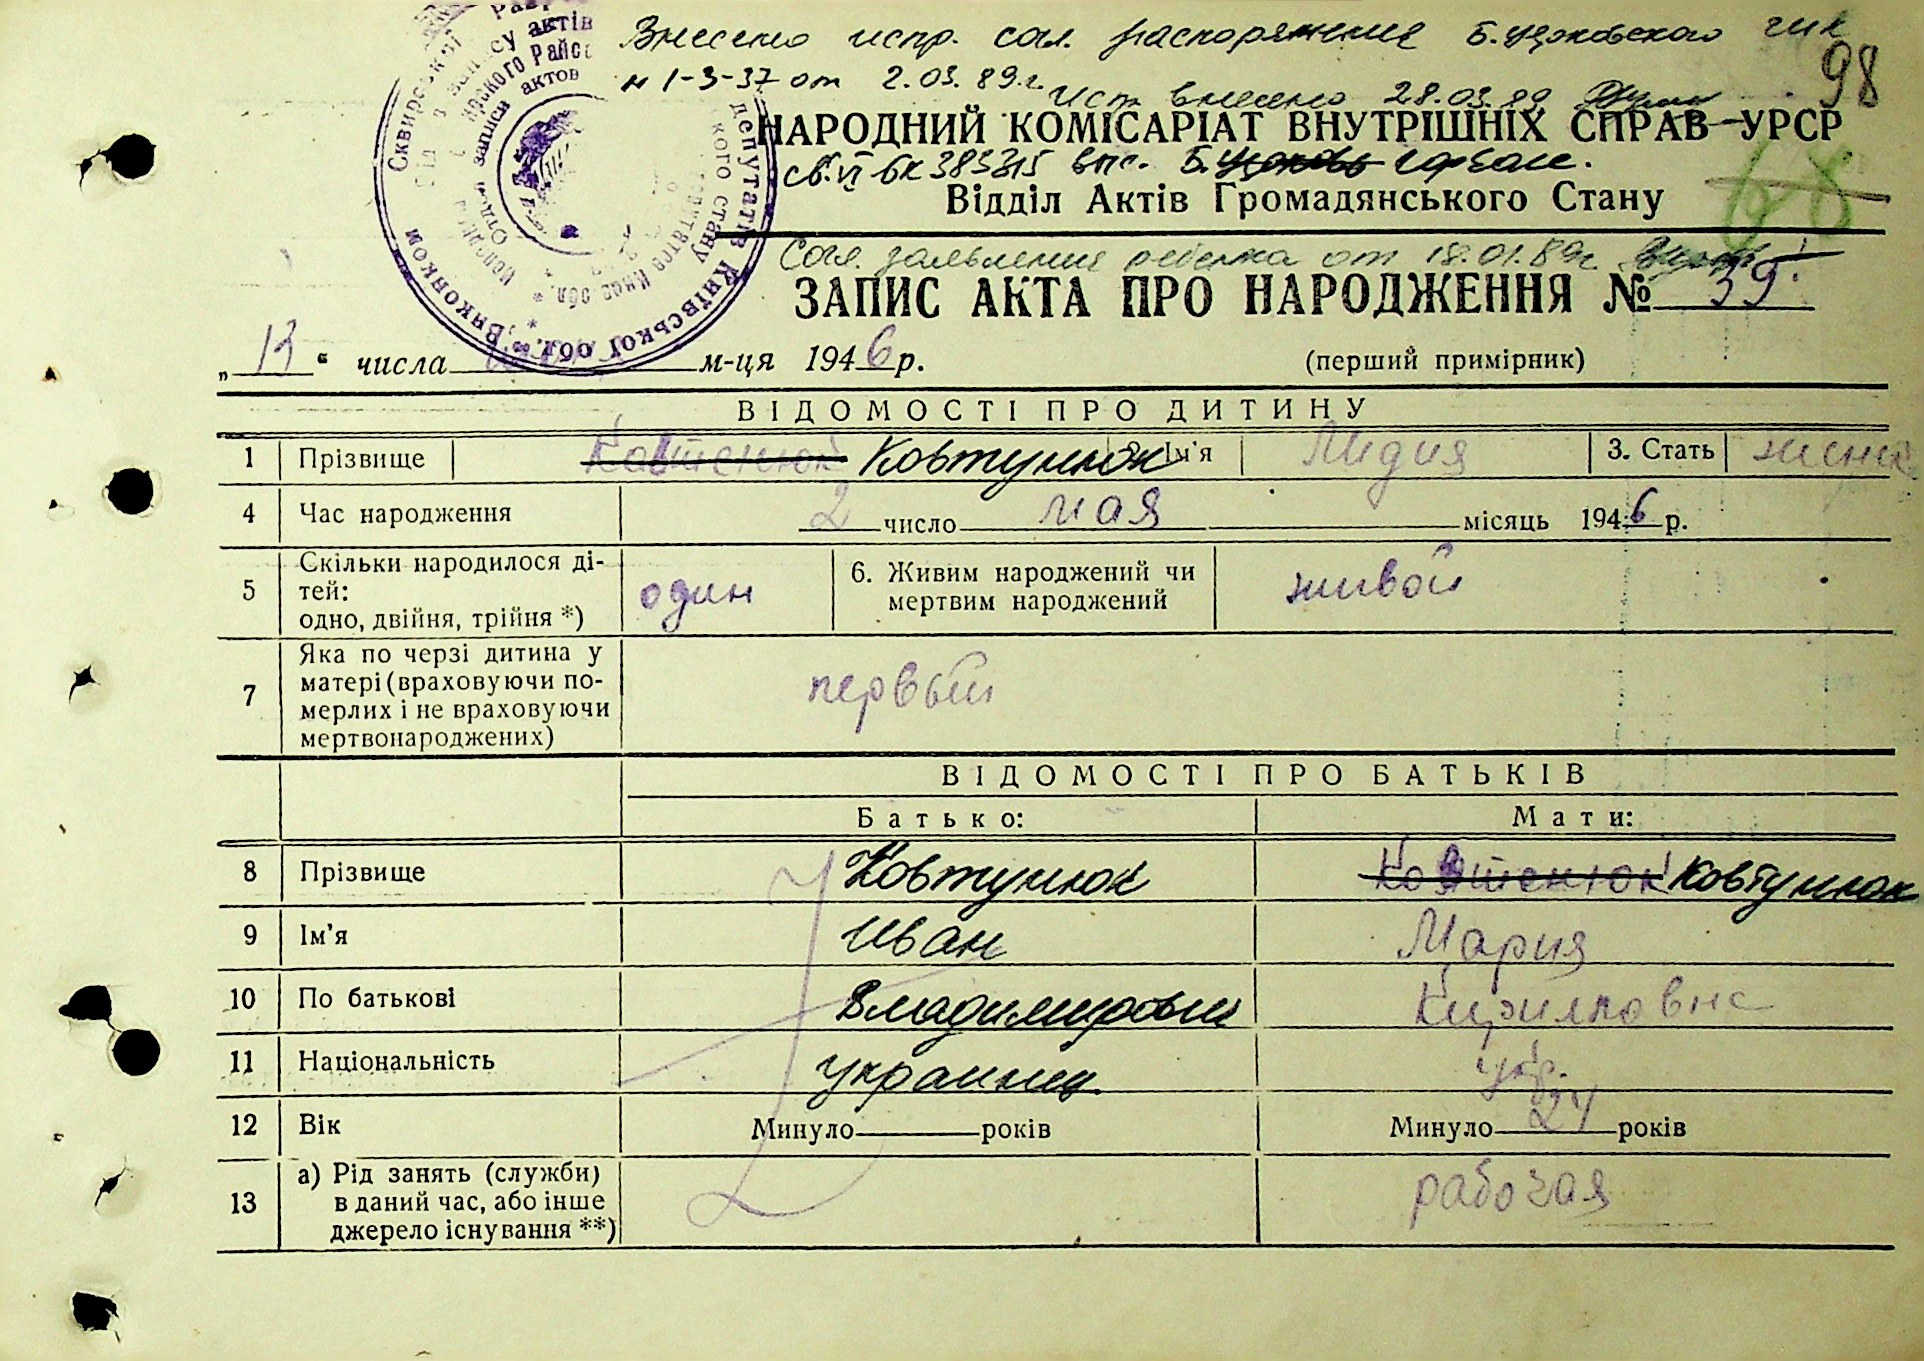 Внесено испр. согл. распоряжение Б.Церковского гик
98
н 1-3-37 от 2.03.89.г.
Испр. внесено 28.03.89
НАРОДНИЙ КОМІСАРІАТ ВНУТРІШНІХ СПРАВ УРСР
св. VI БК 383315
Відділ Актів Громадянського Стану
68
Согл. заявления ребенка от 18.01.89г
ЗАПИС АКТА ПРО НАРОДЖЕННЯ № 39
„ 13 “ числа м-ця 1946 р. (перший примірник)
ВІДОМОСТІ ПРО ДИТИНУ
1 Прізвище Ковтенюк Ковтунюк 2. Ім'я Лидия 3. Стать женс
4 Час народження 2 число мая місяць 1946 р.
5 Скільки народилося ді-
тей:
одно, двійня, трійня *) один 6. Живим народжений чи
мертвим народжений живой
7 Яка по черзі дитина у
матері (враховуючи по-
мерлих і не враховуючи
мертвонароджених) первый
ВІДОМОСТІ ПРО БАТЬКІВ
Батько: Мати:
8 Прізвище Ковтунюк Ковтенюк Ковтунюк
9 Ім'я Иван Мария
10 По батькові Владимирович Кирилловна
11 Національність украинец укр.
12 Вік Минуло років Минуло 24 років
13 а) Рід занять (служби)
в даний час, або інше
джерело існування **) рабочая